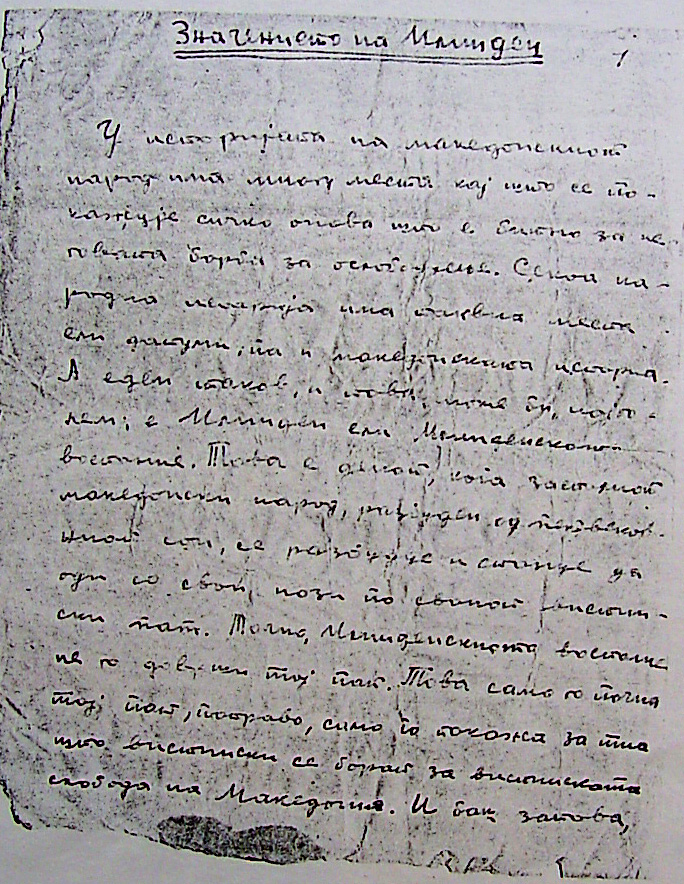 Значењето на Илинден
1
У историјата на македонскиот
народ има многу места кој што се по-
кажује сичко онова што е битно за не-
говата борба за ослободуење. Секоа на-
родна историја има таквиа места
ели датуми, па и македонската историа.
А еден таков, и това, може би, најго-
лем, е Илинден ели Илинденското
востание. Това е денот, која заспаниот
македонски народ, разбуден од петвеков-
ниот сон, се раздвиџуе и стануе да
оди со свои нози по својот вистин-
ски пат. Точно, Илинденското востание
не го доврши тој пат. Това само го почна
тој пат, поправо, само го покажа за тиа
што вистински се борат за вистинската
слобода на Македонија. И баш затова,